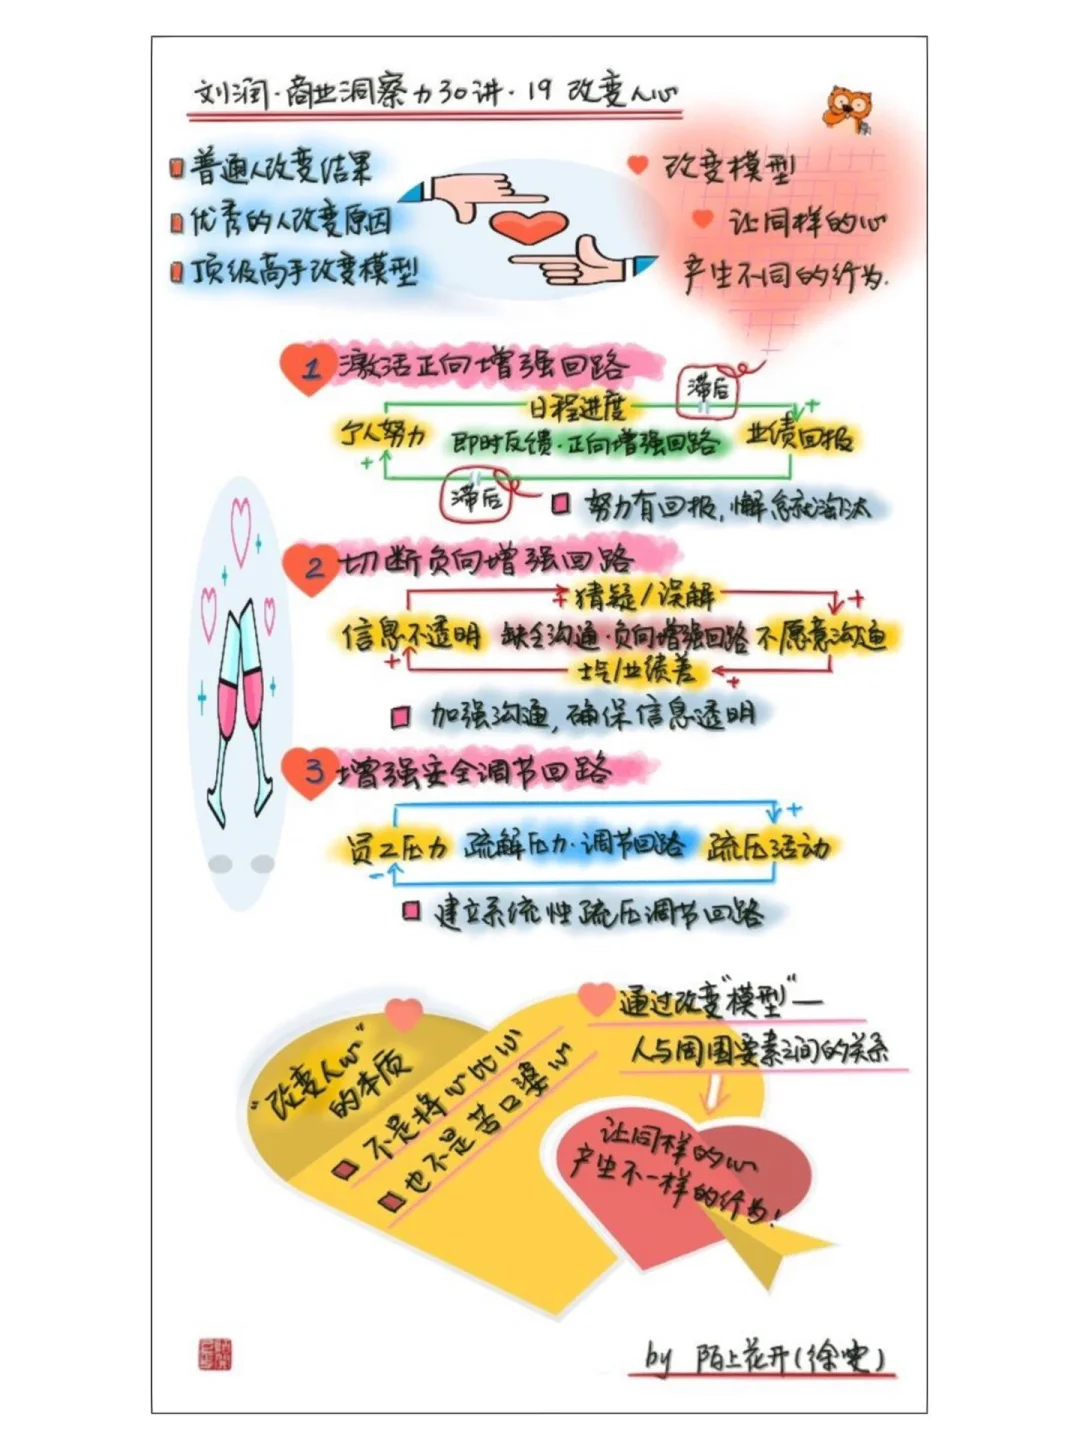 刘润·商业洞察力30讲·19 改变人心
普通人改变结果
优秀的人改变原因
顶级高手改变模型
改变模型
让同样的心
产生不同的行为.
1 激活正向增强回路
滞后
日程进度
+
个人努力
即时反馈·正向增强回路
业绩回报
+
滞后
努力有回报,懈怠就淘汰
2 切断负向增强回路
+ 猜疑/误解
+
信息不透明
缺乏沟通·负向增强回路
不愿意沟通
+
士气/业绩差
+
加强沟通,确保信息透明
3 增强安全调节回路
+
员工压力
疏解压力·调节回路
疏压活动
-
建立系统性疏压调节回路
通过改变"模型"—
人与周围要素之间的关系
"改变人心"
的本质
不是将心比心
也不是苦口婆心
让同样的心
产生不一样的行为!
by 陌上花开(徐)